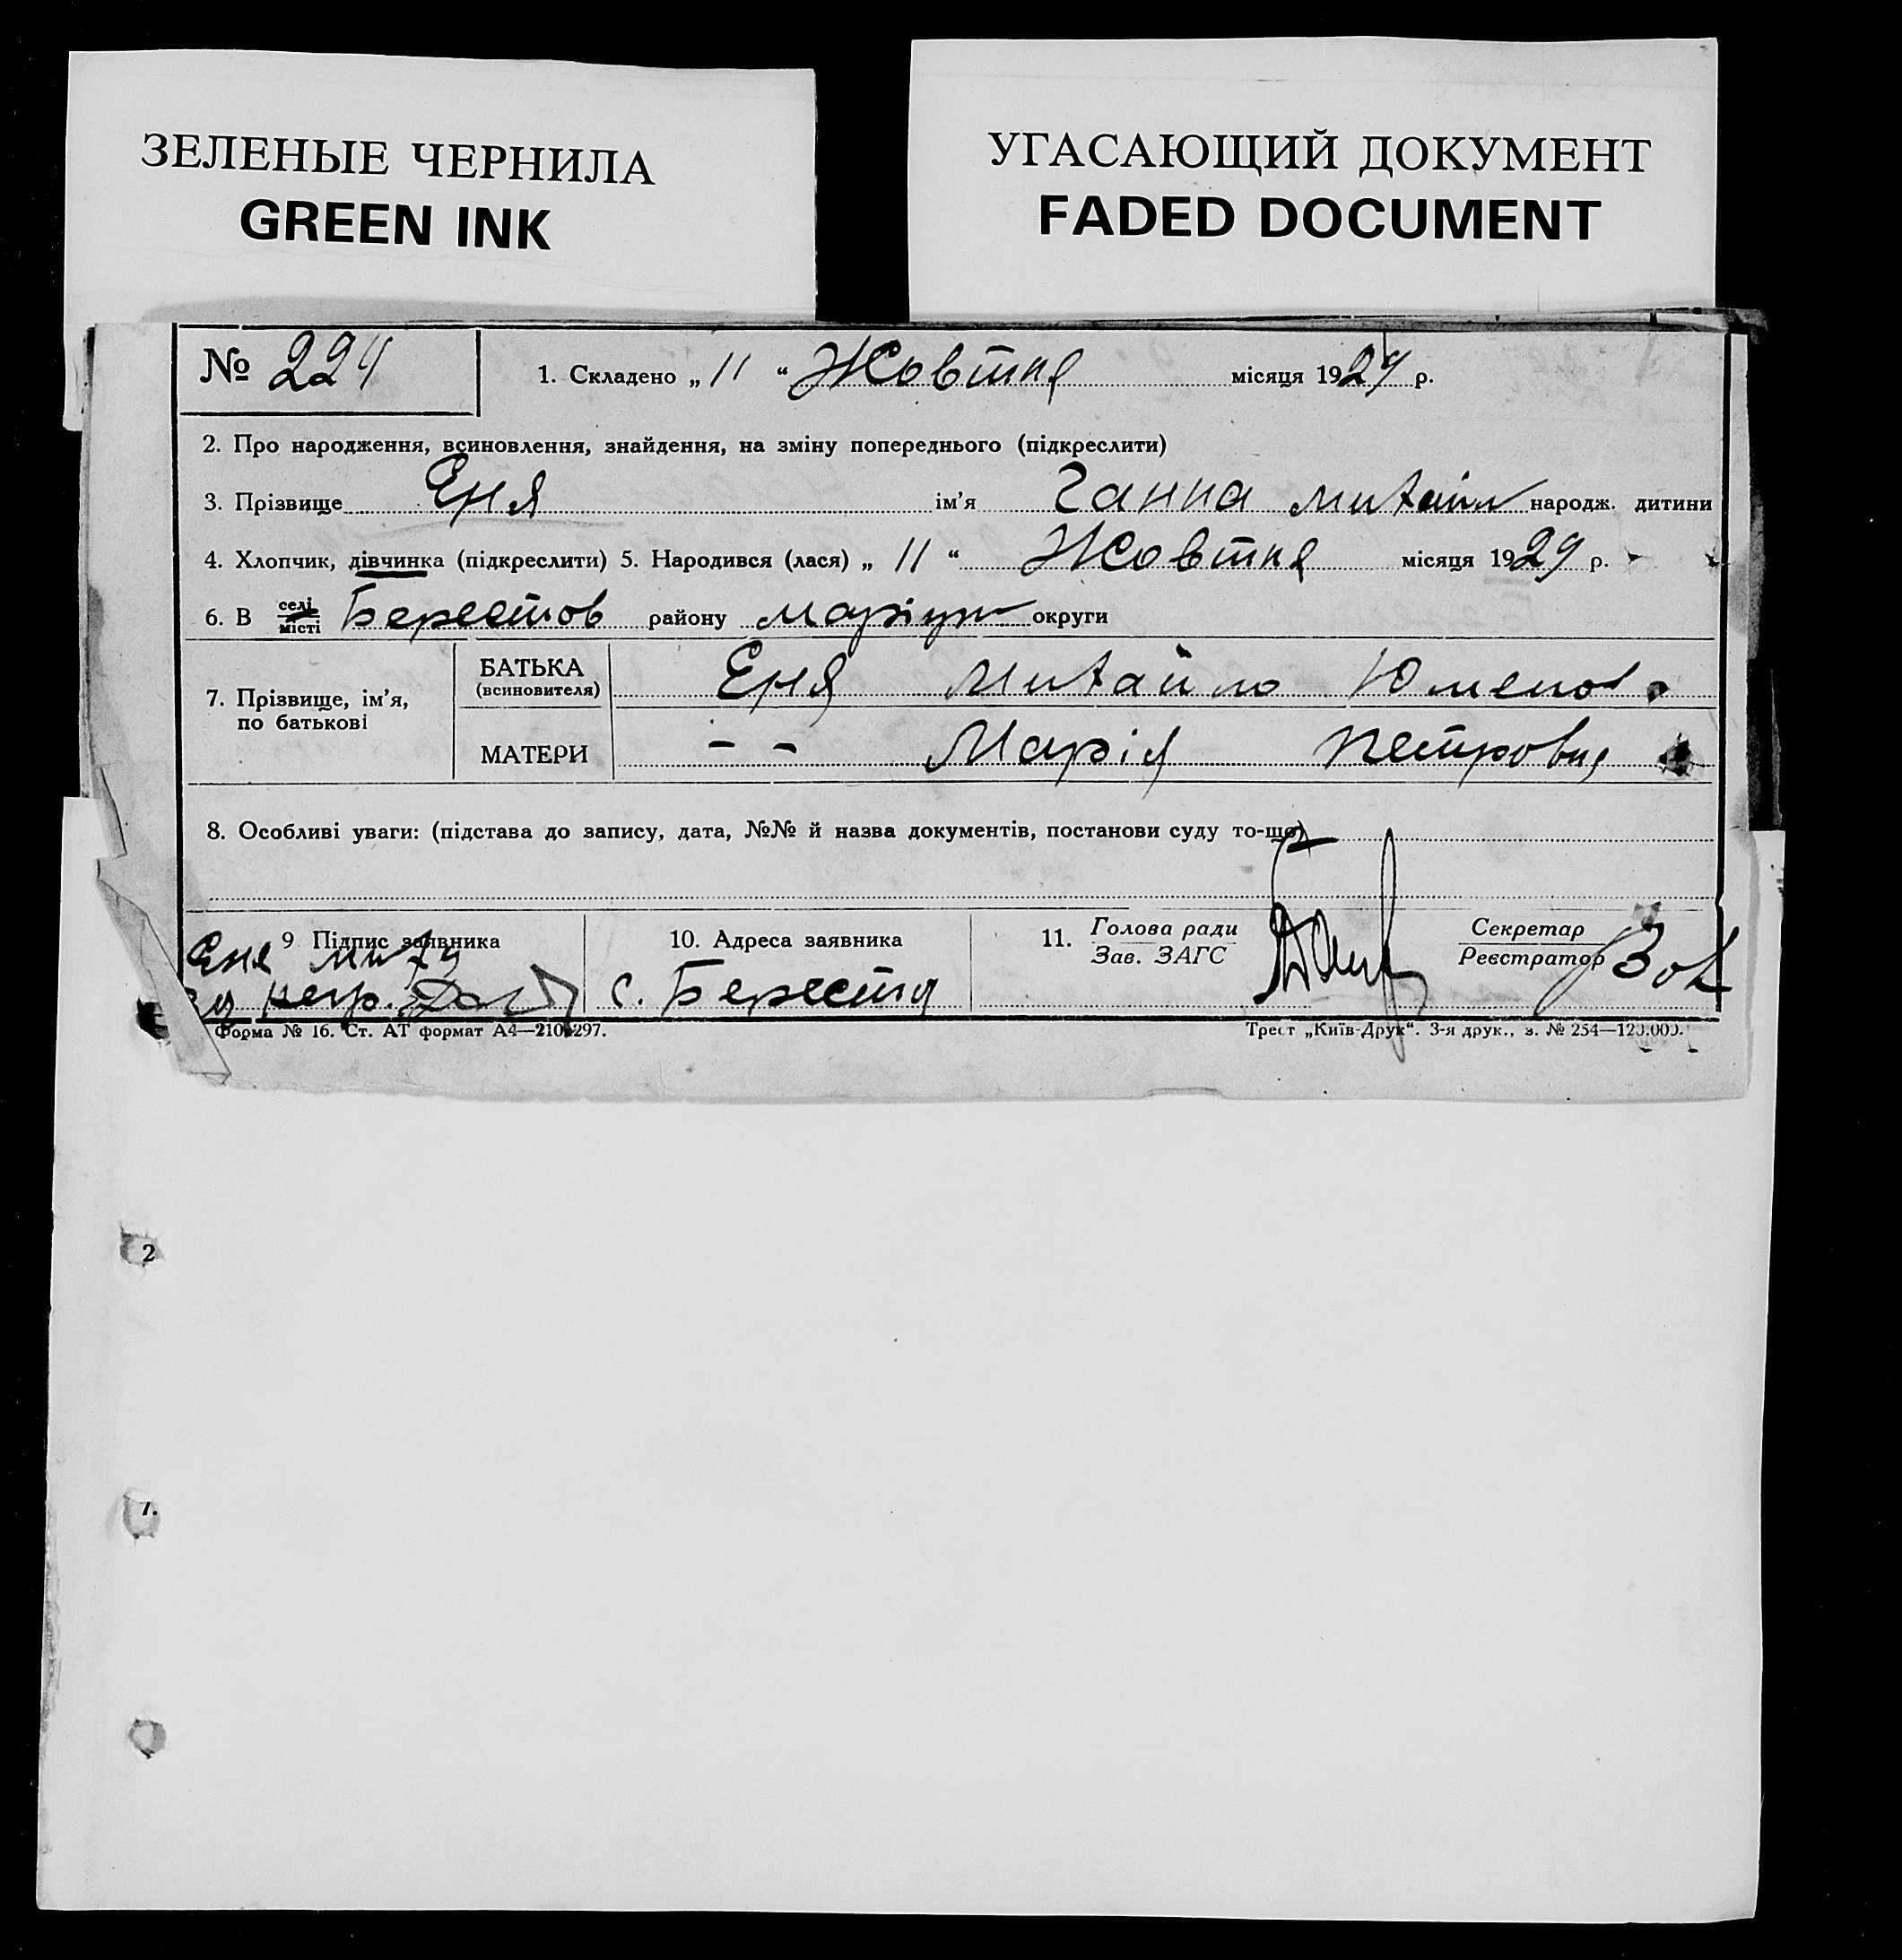 ЗЕЛЕНЫЕ ЧЕРНИЛА
GREEN INK
УГАСАЮЩИЙ ДОКУМЕНТ
FADED DOCUMENT
№ 224 1. Складено „ 11 “ Жовтня місяця 1929 р.
2. Про народження, всиновлення, знайдення, на зміну попереднього (підкреслити)
3. Прізвище Еня ім’я Ганна Михайл народж. дитини
4. Хлопчик, дівчинка (підкреслити) 5. Народився (лася) „ 11 “ Жовтня місяця 1929 р.
6. В селі місті Берестов району Маріуп округи
7. Прізвище, ім’я, по батькові
БАТЬКА (всиновителя) Еня Михайло
МАТЕРИ – – Марія Петровна
8. Особливі уваги: (підстава до запису, дата, №№ й назва документів, постанови суду то-що)
9 Підпис заявника
Еня Миха
за негр.
10. Адреса заявника
с. Берестов
11. Голова ради
Зав. ЗАГС
Секретар
Реєстратор
Форма № 16. Ст. АТ формат А4—210×297.
Трест „Київ-Друк“. 3-я друк., з. № 254—120.000.
2
7.